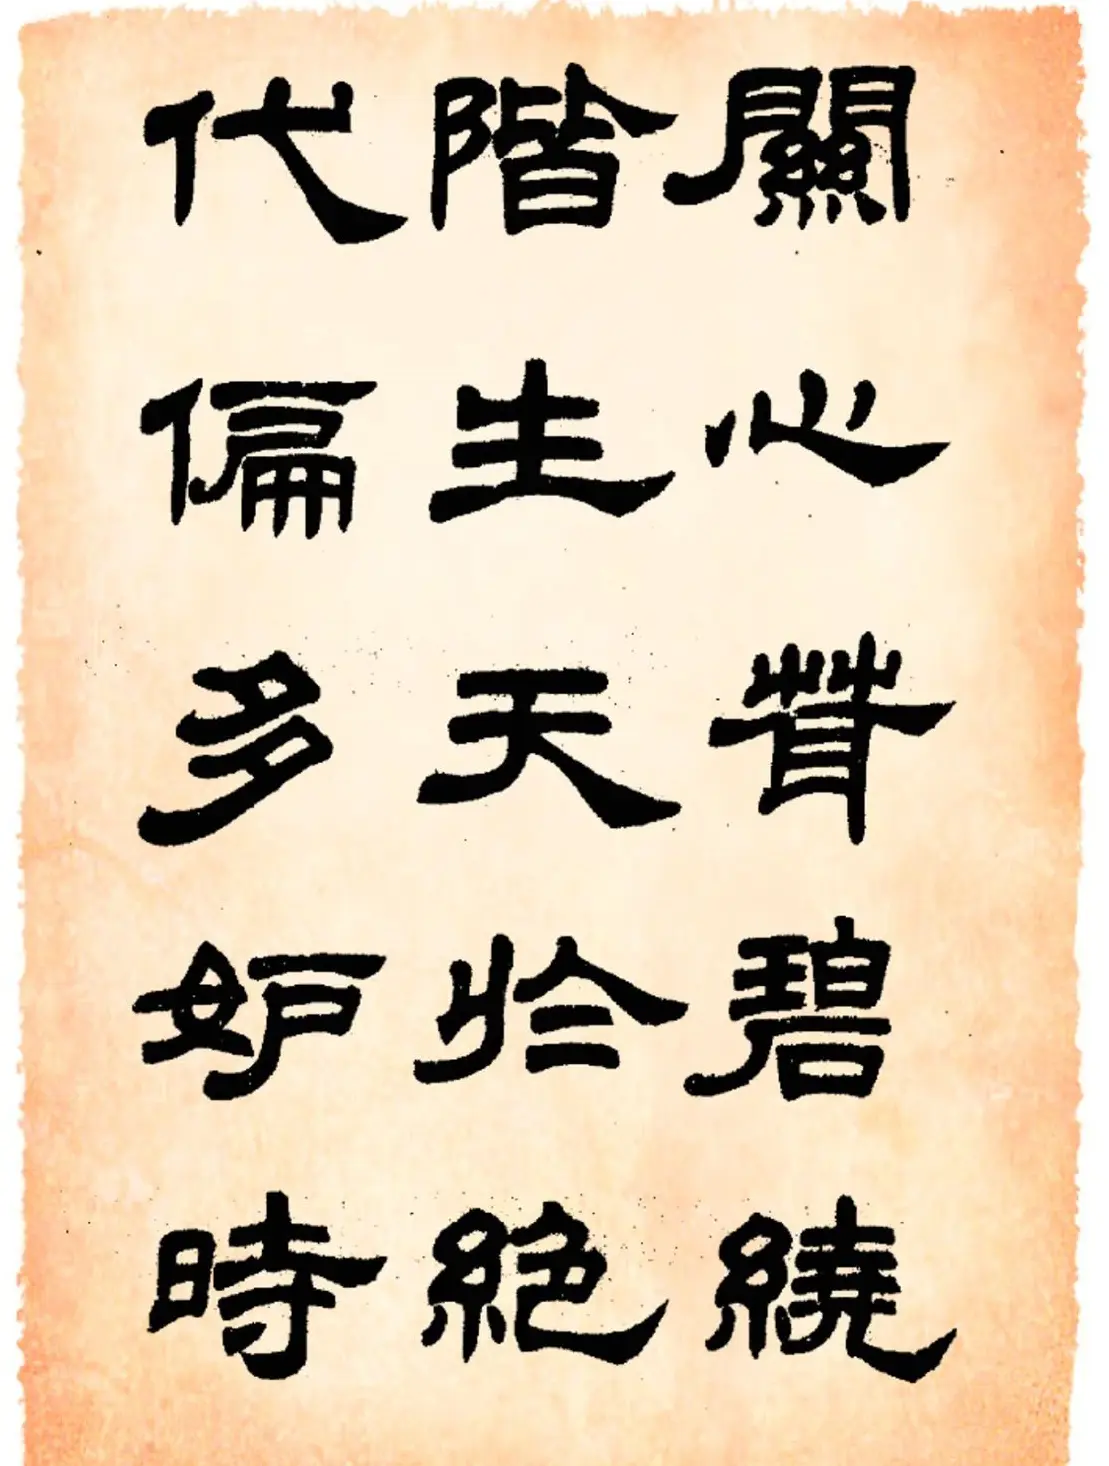 關心茸碧繞
階生天於絕
代偏多妒時